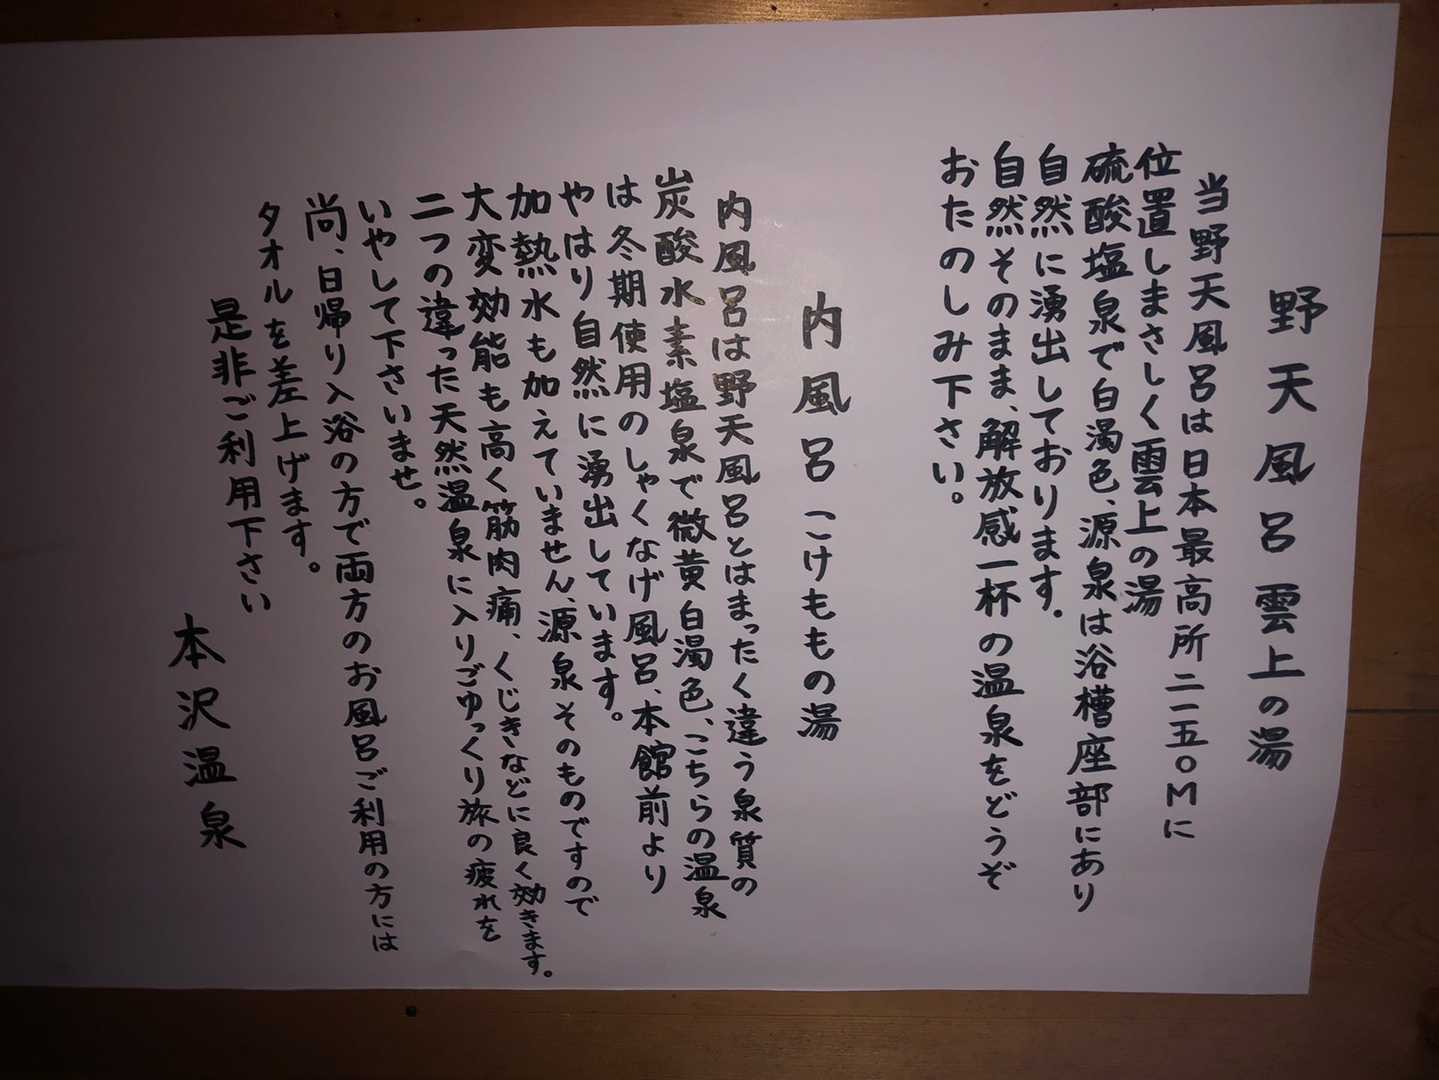 野天風呂 雲上の湯
当野天風呂は日本最高所二一五〇Mに
位置しまさしく雲上の湯
硫酸塩泉で白濁色、源泉は浴槽座部にあり
自然に湧出しております.
自然そのまま、解放感一杯の温泉をどうぞ
おたのしみ下さい。
内風呂 こけももの湯
内風呂は野天風呂とはまったく違う泉質の
炭酸水素塩泉で微黄白濁色、こちらの温泉
は冬期使用のしゃくなげ風呂、本館前より
やはり自然に湧出しています。
加熱水も加えていません、源泉そのものですので
大変効能も高く筋肉痛、くじきなどに良く効きます。
二つの違った天然温泉に入りごゆっくり旅の疲れを
いやして下さいませ。
尚、日帰り入浴の方で両方のお風呂ご利用の方には
タオルを差上げます。
是非ご利用下さい
本沢温泉